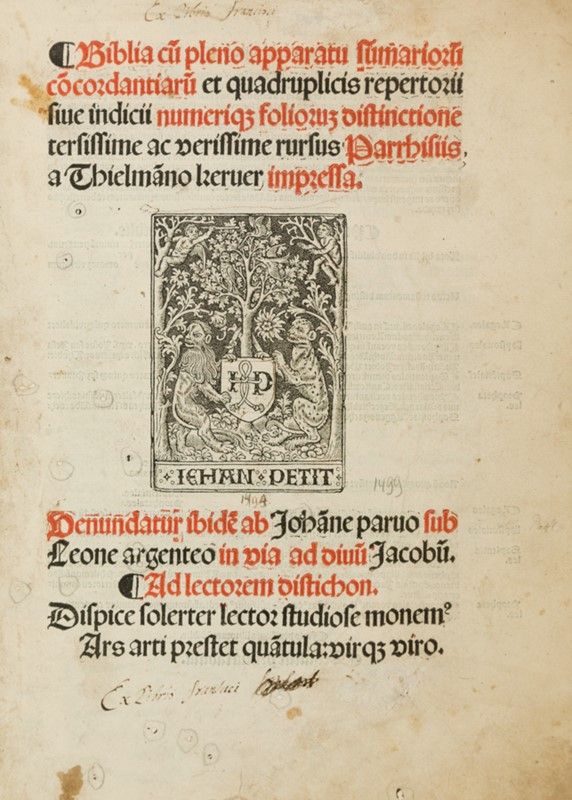 Ex Libris Francisci
¶ Biblia cū pleno apparatu sūmarioꝝ
cōcordantiarū et quadruplicis repertorii
siue indicii numeriqꝫ folioꝝ distinctione
tersissime ac verissime rursus Parrhisiis,
a Thielmāno keruer impressa.
HP
IEHAN PETIT
1494
1499
Venundatur ibidē ab Johāne paruo sub
Leone argenteo in via ad diuū Jacobū.
¶ Ad lectorem distichon.
Dispice solerter lector studiose monemꝰ
Ars arti prestet quātula: virqꝫ viro.
Ex Libris Francisci